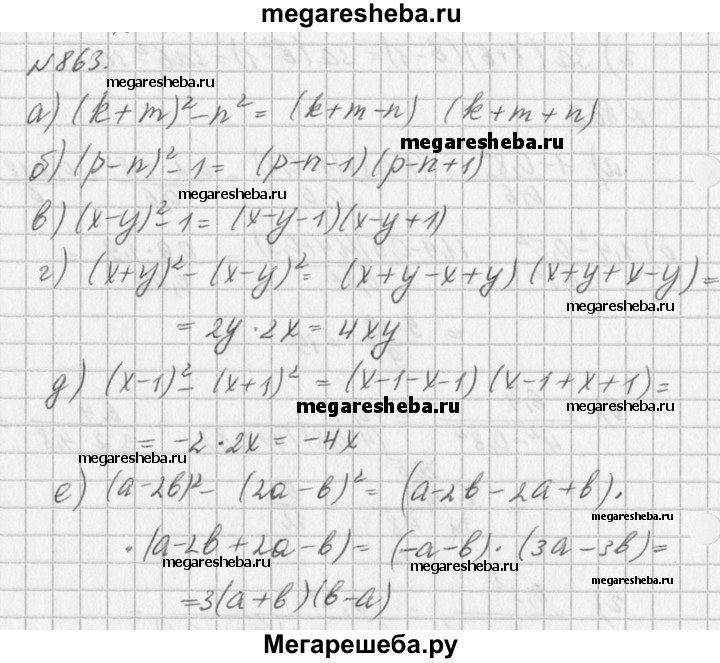 megaresheba.ru
№863.
megaresheba.ru
а) (k+m)²-n² = (k+m-n) (k+m+n)
megaresheba.ru
б) (p-n)²-1 = (p-n-1)(p-n+1)
megaresheba.ru
в) (x-y)²-1 = (x-y-1)(x-y+1)
г) (x+y)²-(x-y)² = (x+y-x+y) (x+y+x-y) =
megaresheba.ru
= 2y·2x = 4xy
д) (x-1)²-(x+1)² = (x-1-x-1) (x-1+x+1) =
megaresheba.ru
megaresheba.ru
= -2·2x = -4x
megaresheba.ru
megaresheba.ru
е) (a-2b)²-(2a-b)² = (a-2b-2a+b)·
megaresheba.ru
·(a-2b+2a-b) = (-a-b)·(3a-3b) =
megaresheba.ru
megaresheba.ru
megaresheba.ru
=3(a+b)(b-a)
Мегарешеба.ру